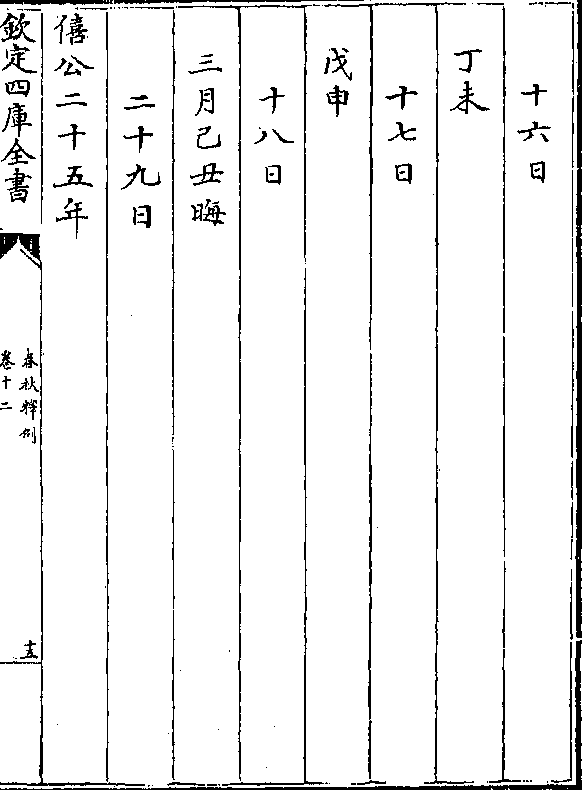 十六日
丁未
十七日
戊申
十八日
三月己丑晦
二十九日
僖公二十五年
欽定四庫全書
春秋釋例
卷十二
十五